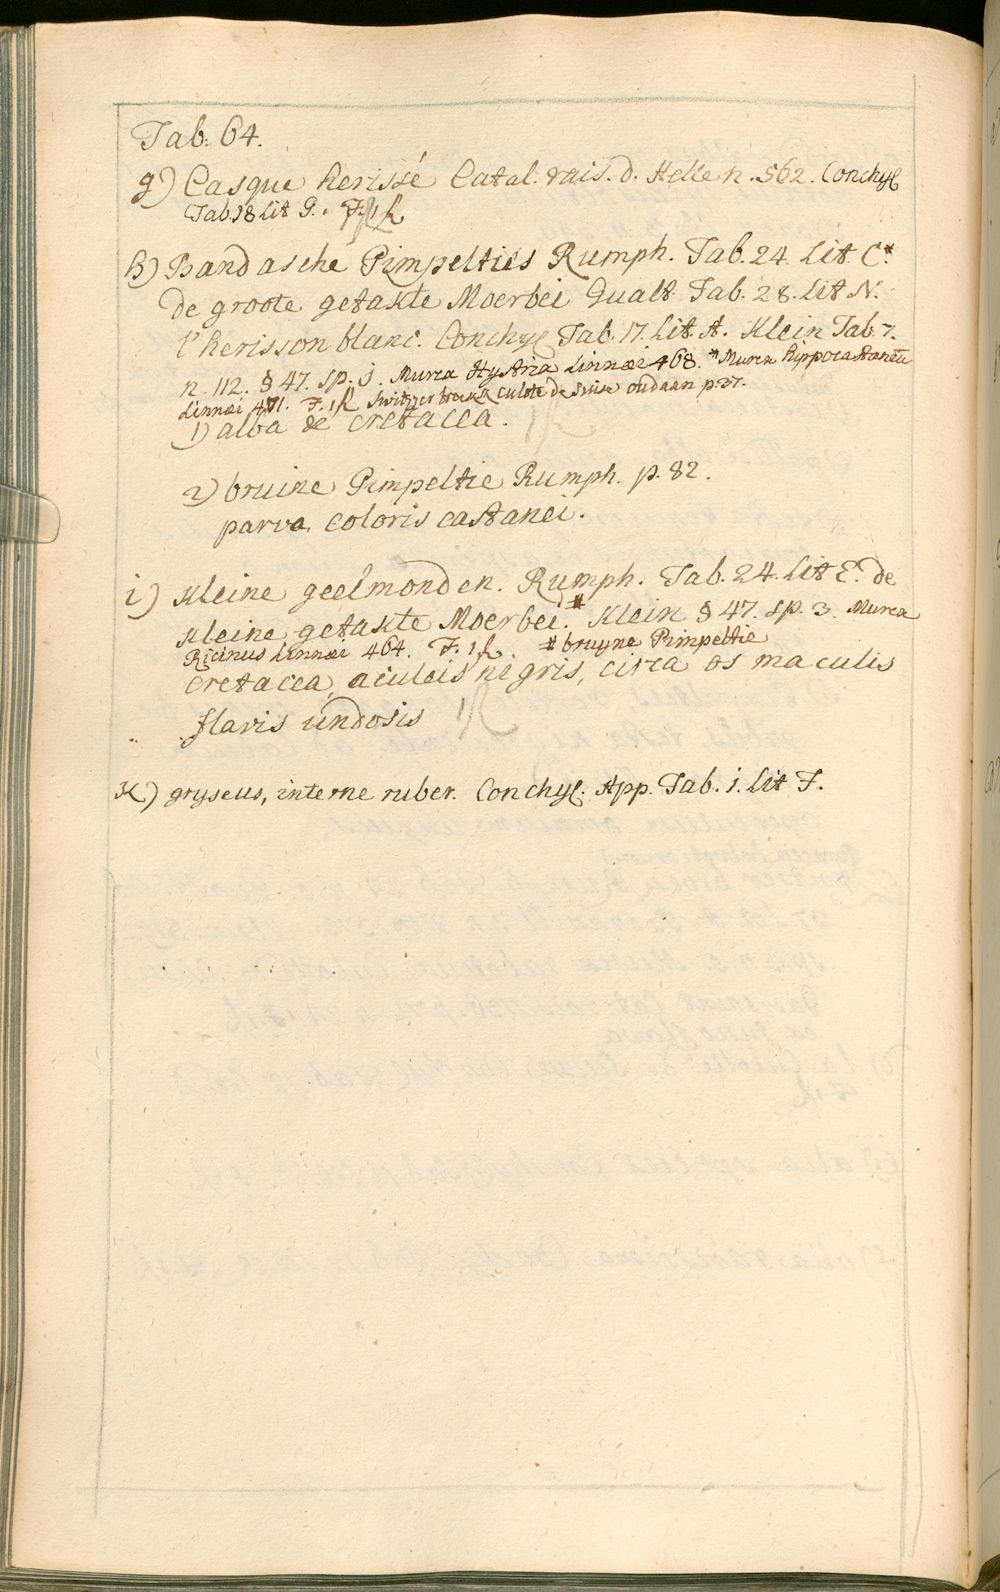 Tab. 64.
g) Casque herissé Catal. rais. d. Helle n. 562. Conchyl
Tab. 18 Lit G.
h) Bandasche Pimpelties Rumph. Tab. 24. Lit C*
de groote getakte Moerbei Gualt. Tab. 28. Lit N.
l'herisson blanc. Conchyl Tab. 17. Lit A. Klein Tab 7.
n. 112. § 47. sp. 1. Murex Hystrix Linnæi 468. *Murex hippocastanū
Linnæi 471. F. 1 Switzer broek culote de Suise oudaan p. 37.
1) alba de cretacea.
2) bruine Pimpeltie Rumph. p. 82.
parva, coloris castanei.
i) kleine geelmonden. Rumph. Tab. 24. Lit E. de
kleine getakte Moerbei.# Klein § 47. sp. 3. Murex
Ricinus Linnæi 464. F. 1. # bruyne Pimpeltie
cretacea, aculeis negris, circa os maculis
flavis undosis
K) gryseus, interne ruber. Conchyl. App. Tab. 1. Lit F.